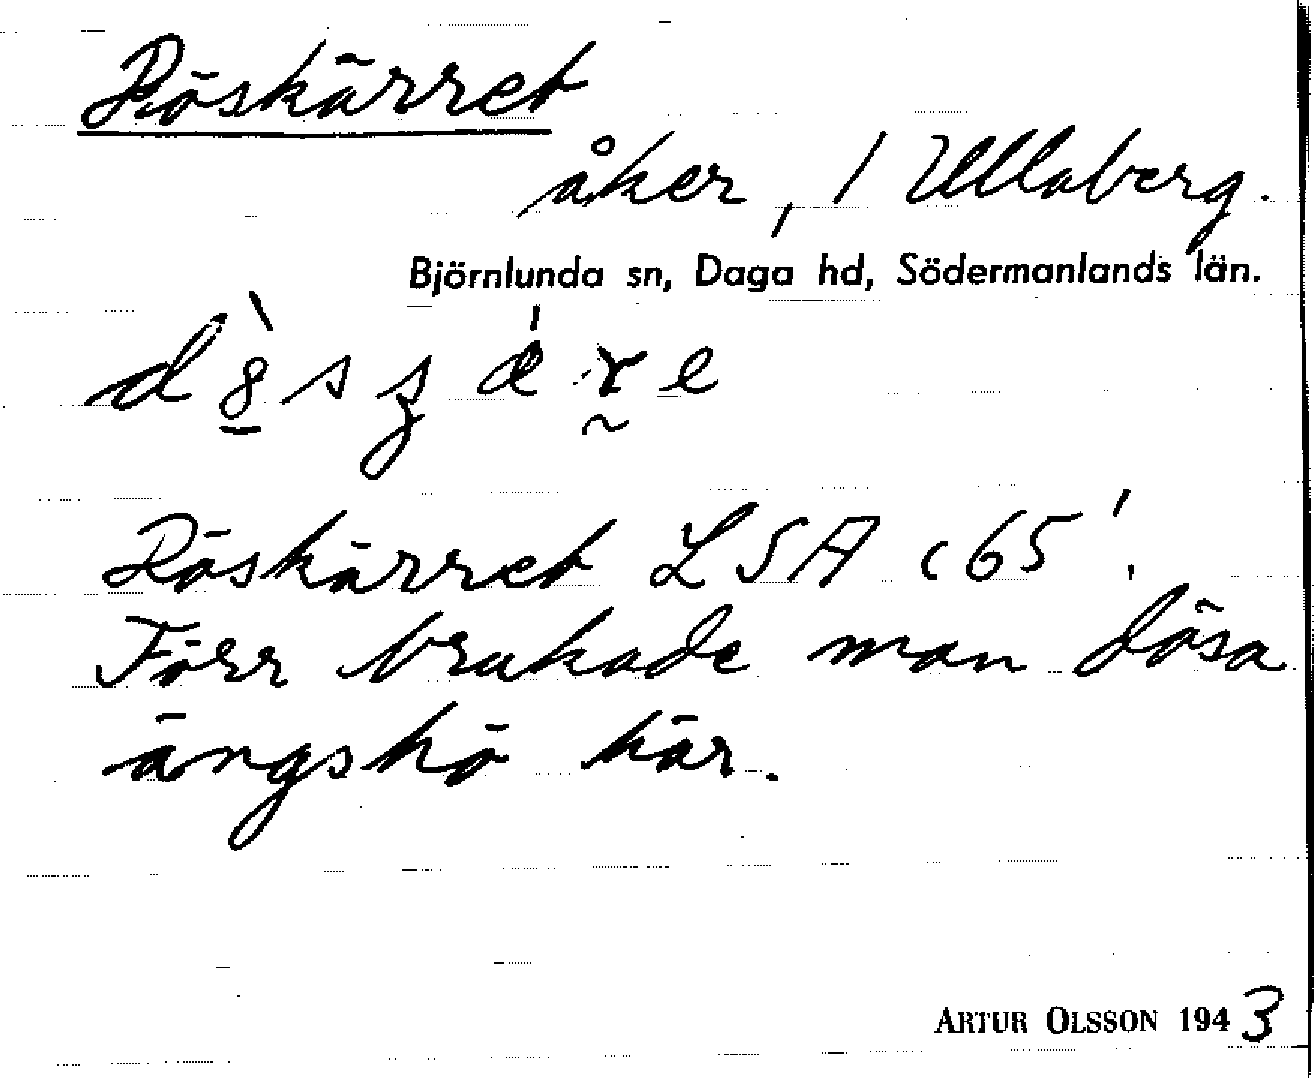 Döskärret
åker, / Ullaberg.
Björnlunda sn, Daga hd, Södermanlands län.
Döskärret LSA c65!
Förr brukade man dösa
ängshö här.
ARTUR OLSSON 1943